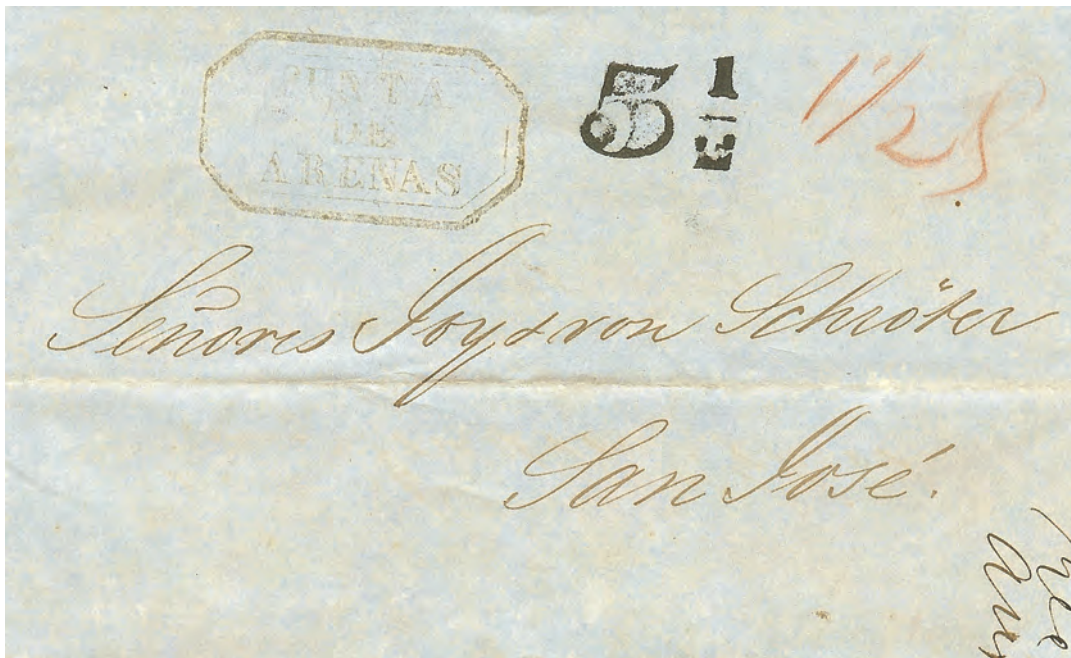 PUNTA
DE
ARENAS
5 1/2
1/2 S
Señores Joy & von Schröter
San José.